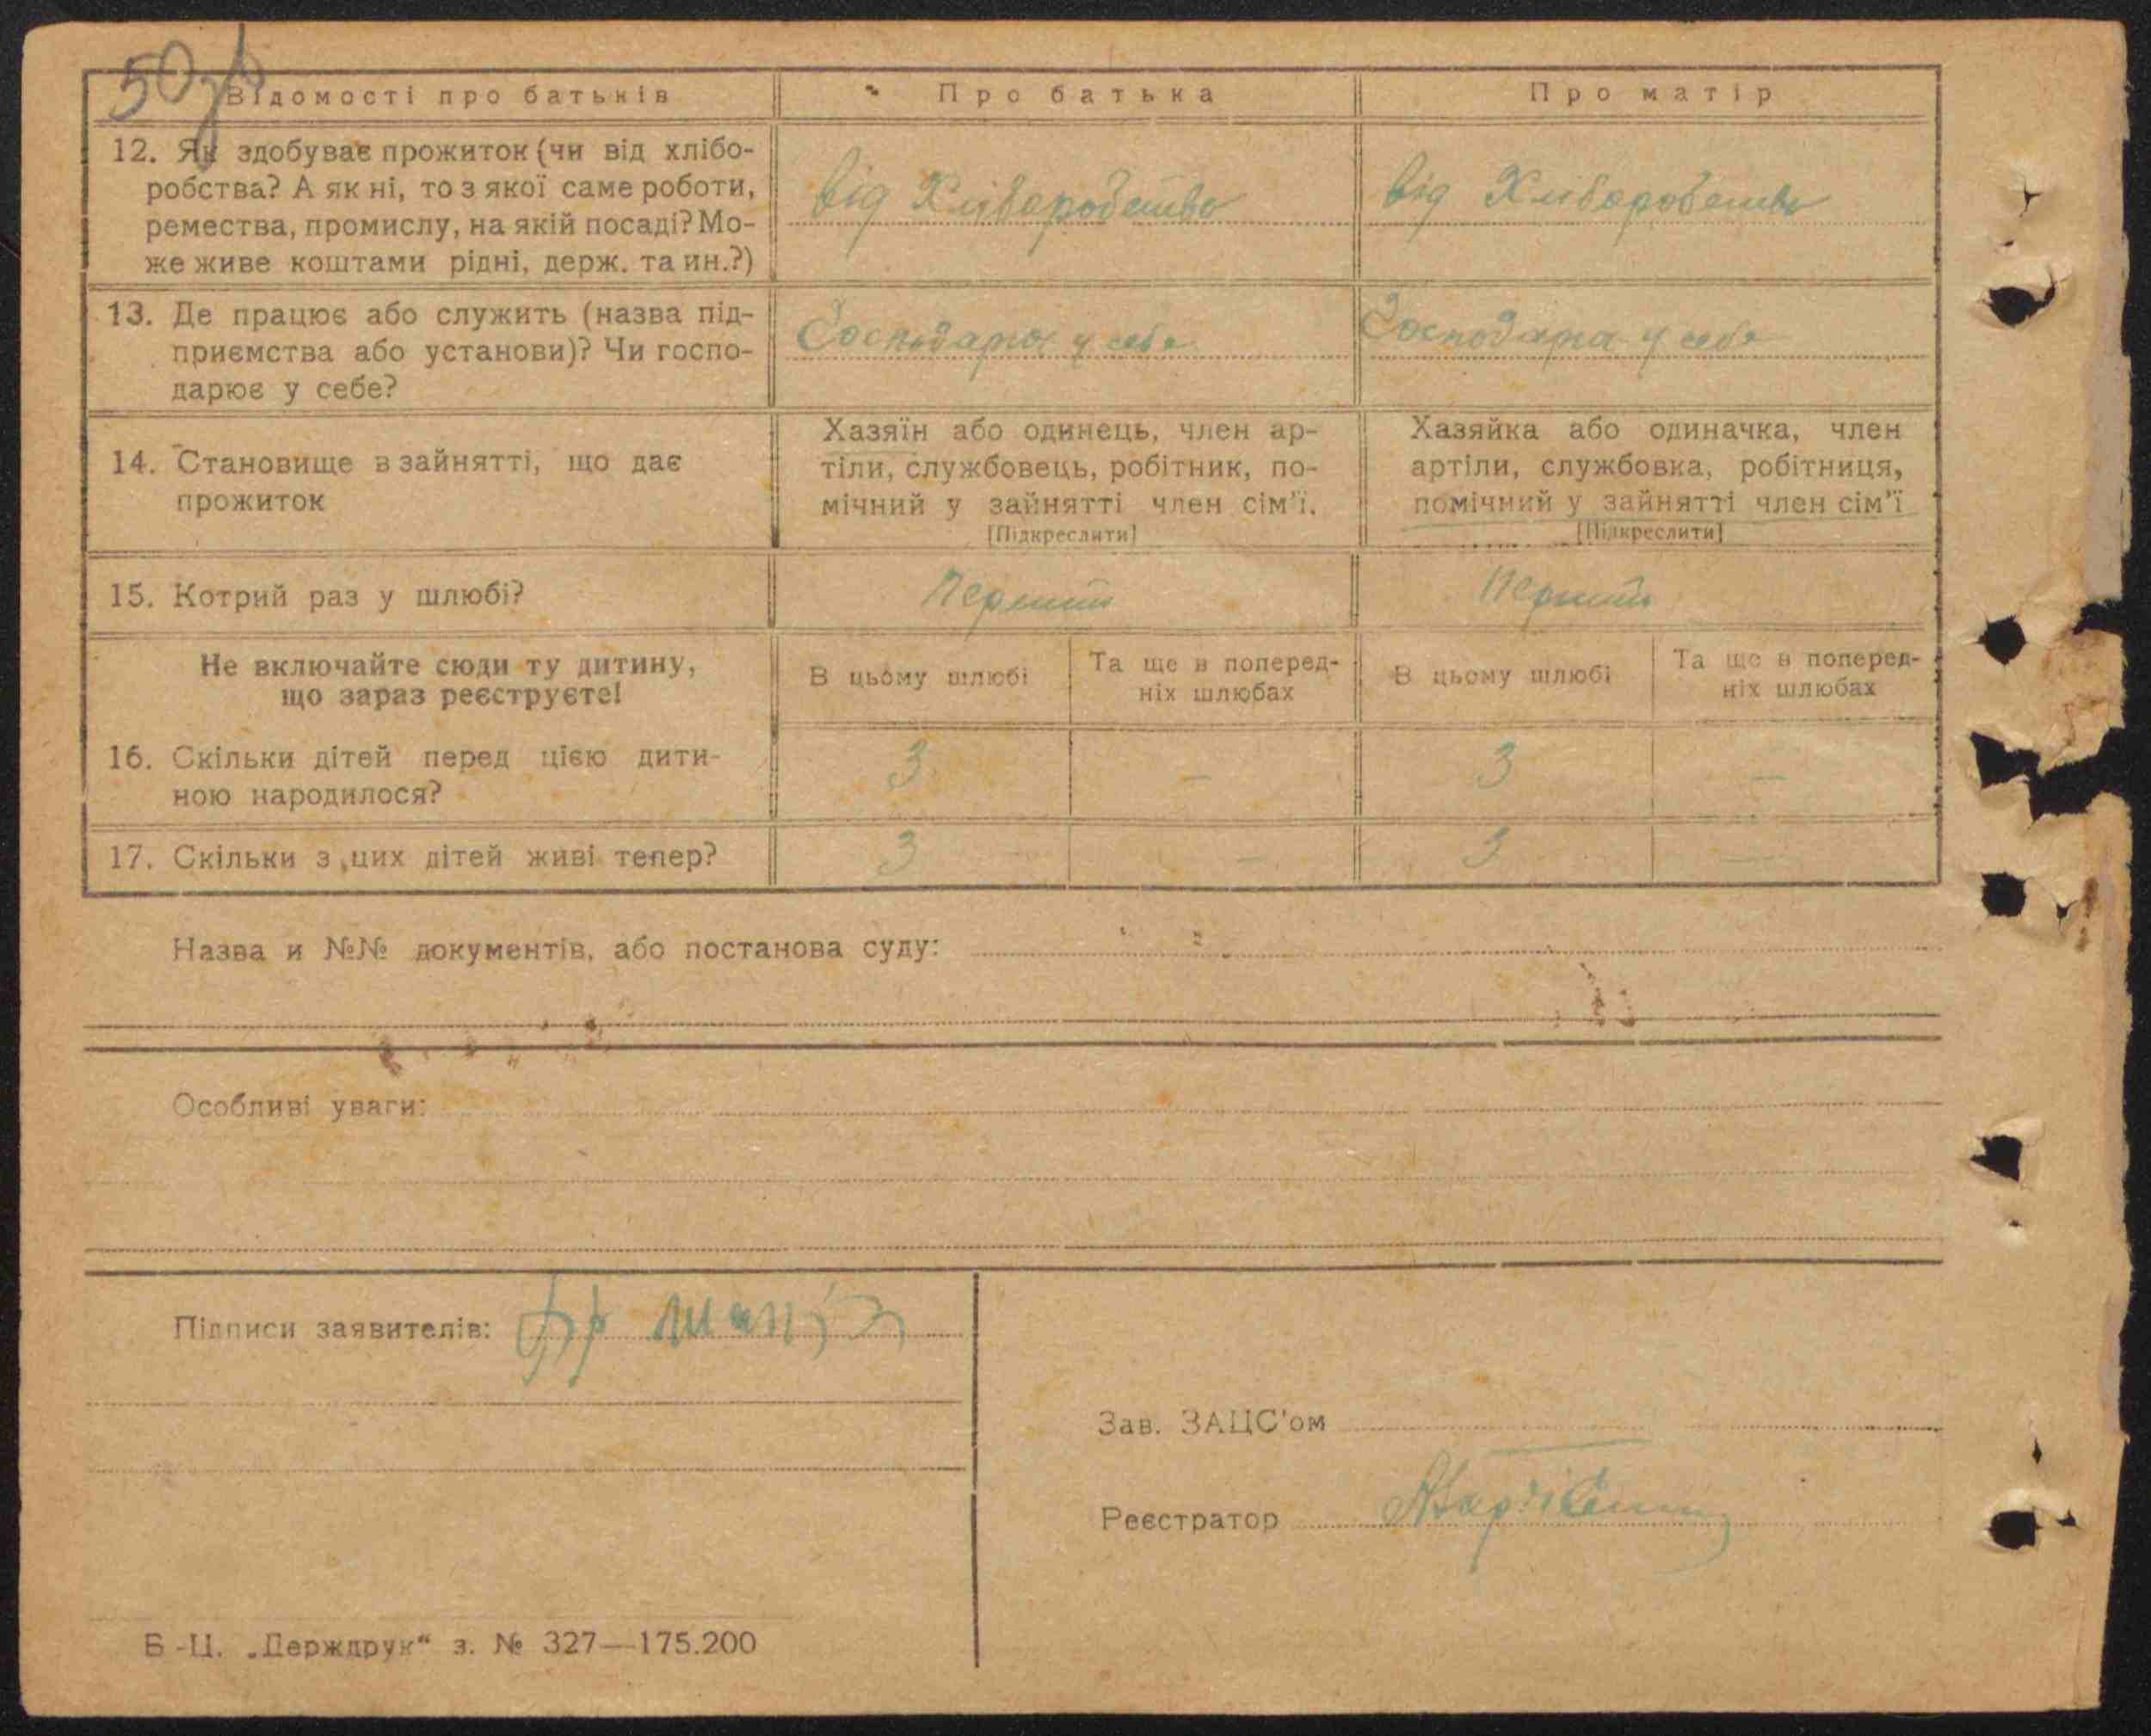 50зв
Відомості про батьків
Про батька
Про матір
12. Як здобуває прожиток (чи від хлібо-
робства? А як ні, то з якої саме роботи,
ремества, промислу, на якій посаді? Мо-
же живе коштами рідні, держ. та ин.?)
від Хліборобства
від Хліборобства
13. Де працює або служить (назва під-
приємства або установи)? Чи госпо-
дарює у себе?
у себе
у себе
14. Становище в зайнятті, що дає
прожиток
Хазяїн або одинець, член ар-
тіли, службовець, робітник, по-
мічний у зайнятті член сім'ї.
[Підкреслити]
Хазяйка або одиначка, член
артіли, службовка, робітниця,
помічний у зайнятті член сім'ї
[Підкреслити]
15. Котрий раз у шлюбі?
Перший
Перший
Не включайте сюди ту дитину,
що зараз реєструєте!
В цьому шлюбі
Та ще в поперед-
ніх шлюбах
В цьому шлюбі
Та ще в поперед-
ніх шлюбах
16. Скільки дітей перед цією дити-
ною народилося?
3
—
3
—
17. Скільки з цих дітей живі тепер?
3
—
3
—
Назва и №№ документів, або постанова суду:
Особливі уваги:
Підписи заявителів:
Зав. ЗАЦС'ом
Реєстратор
Б-Ц. „Держдрук“ з. № 327—175.200